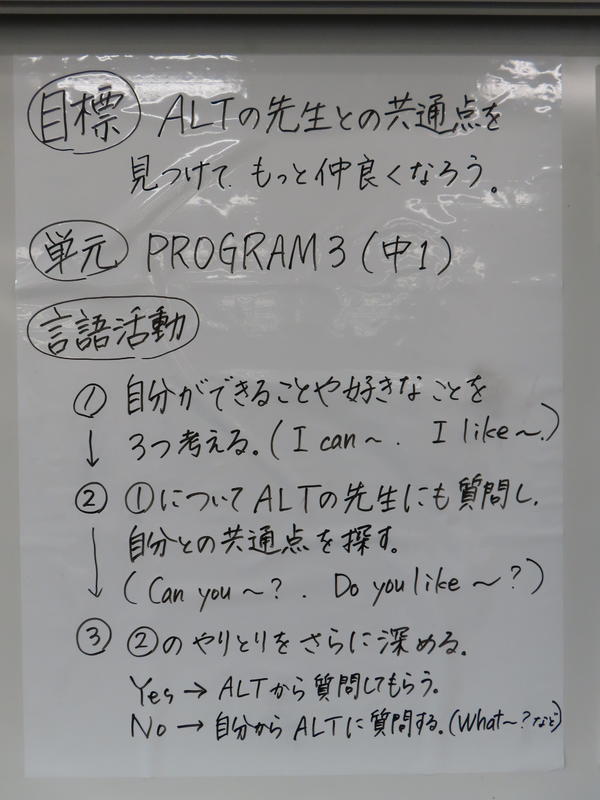 目標 ALTの先生との共通点を
見つけて、もっと仲良くなろう。
単元 PROGRAM3(中1)
言語活動
① 自分ができることや好きなことを
3つ考える。(I can~. I like~.)
↓
② ①についてALTの先生にも質問し、
自分との共通点を探す。
(Can you~?. Do you like ~?)
↓
③ ②のやりとりをさらに深める。
Yes → ALTから質問してもらう。
No → 自分からALTに質問する。(What~?など)